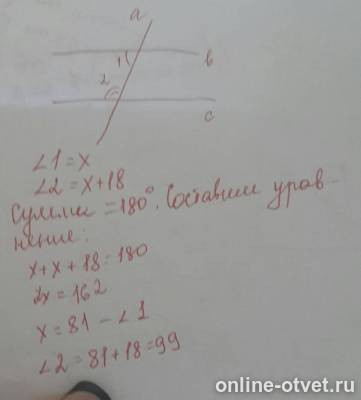 a
1
b
2
c
∠1 = x
∠2 = x+18
Сумма = 180°. Составим урав-
нение:
x+x+18=180
2x=162
x=81 – ∠1
∠2=81+18=99
online-otvet.ru